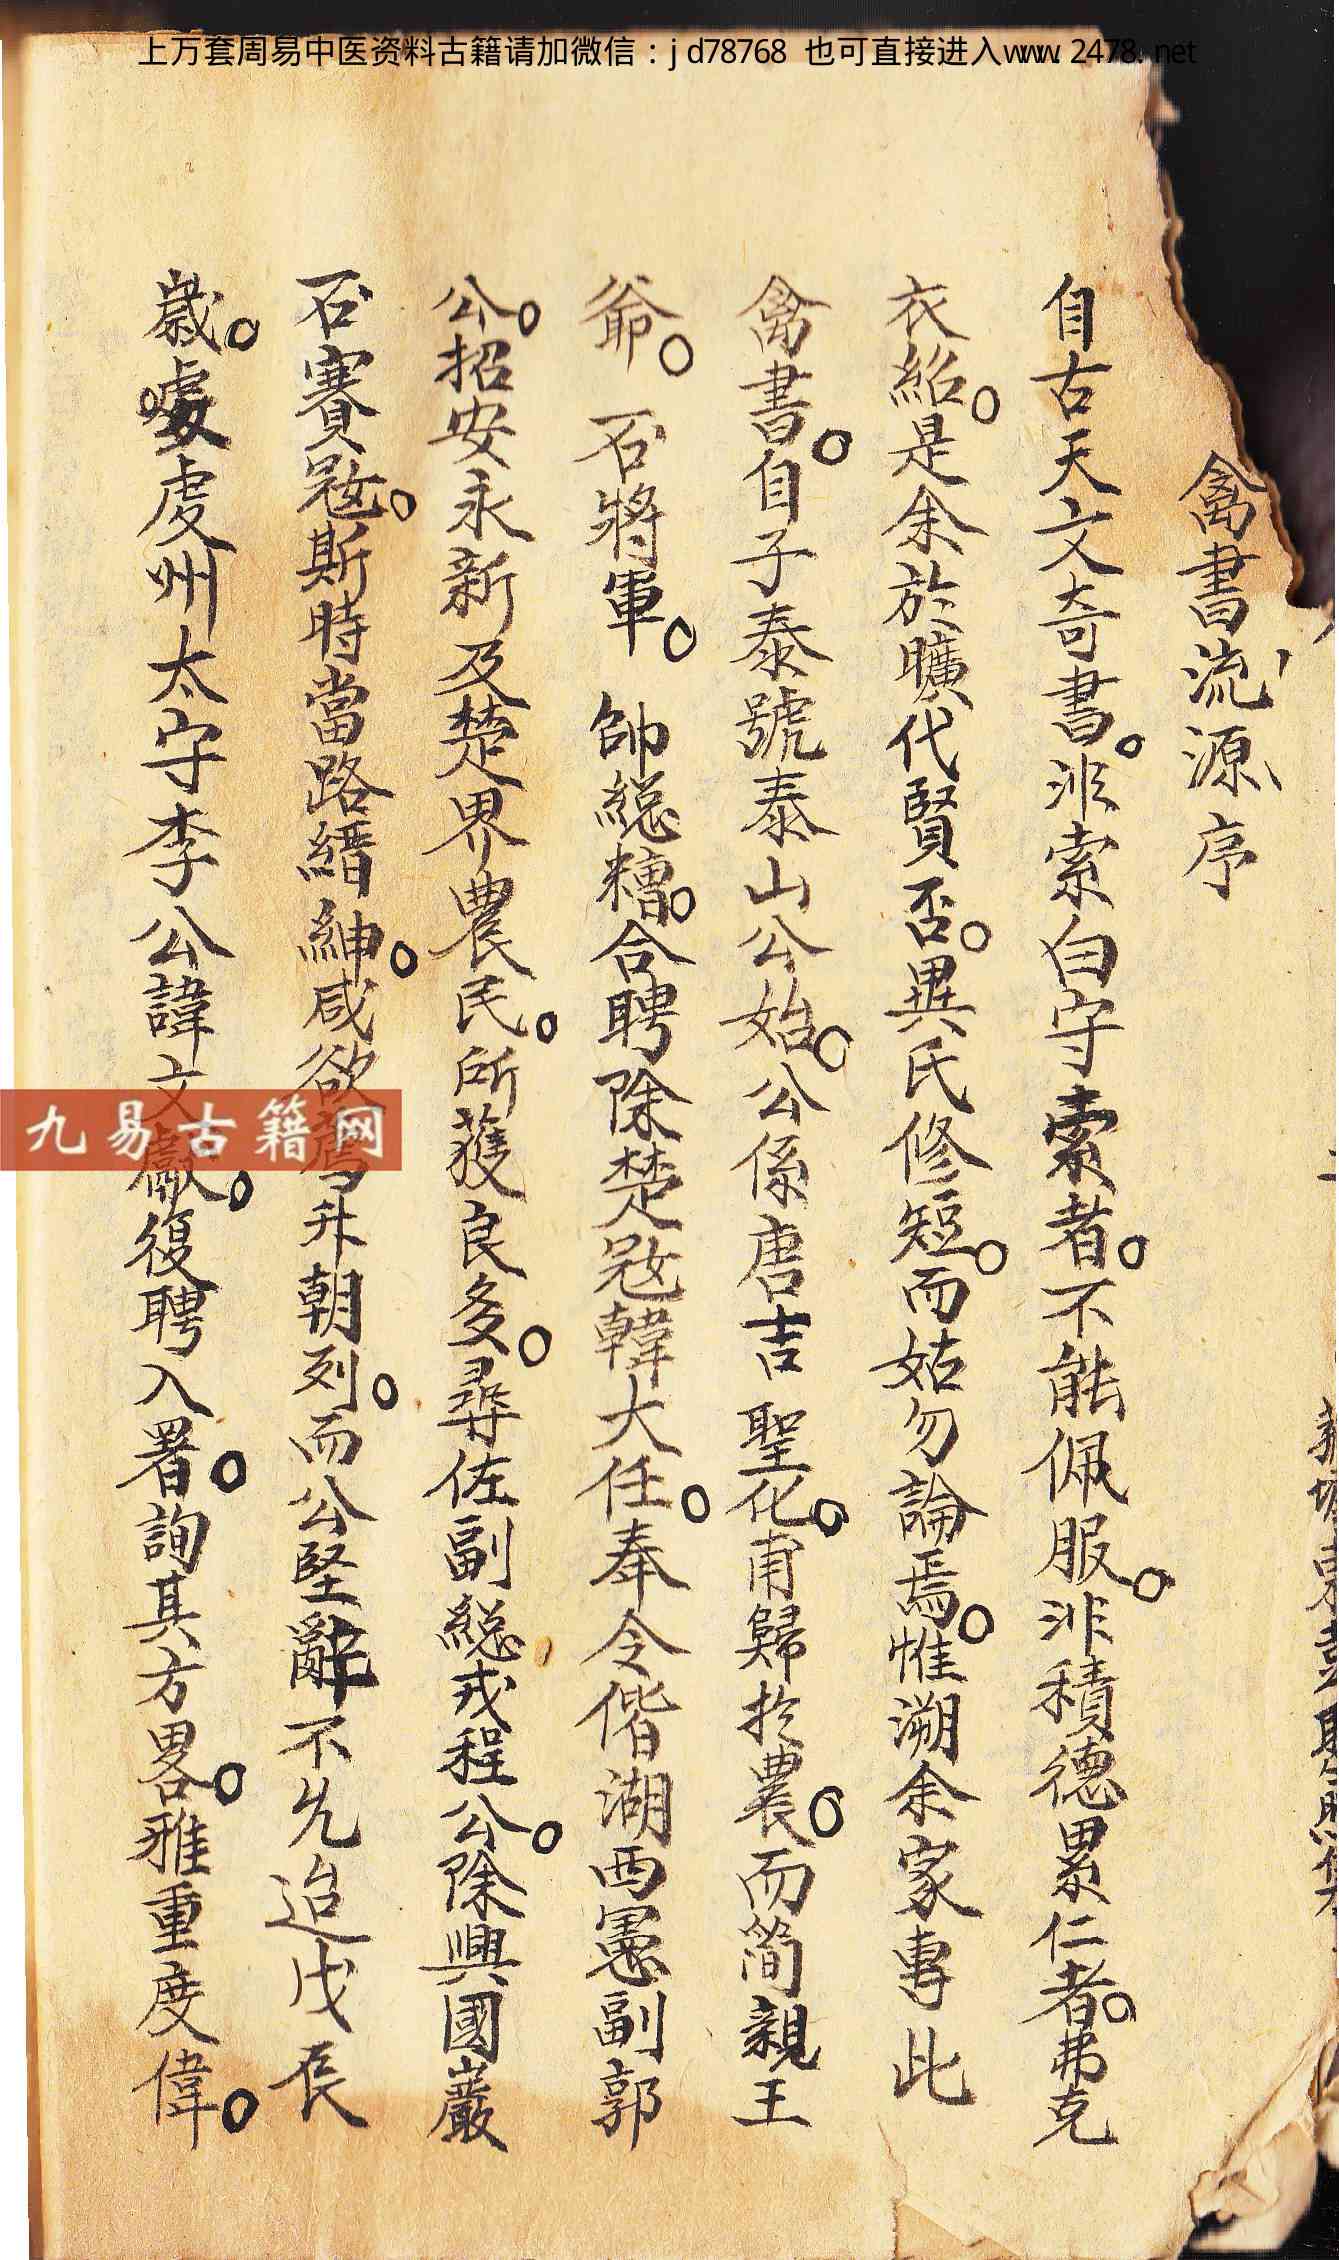 上万套周易中医资料古籍请加微信：jd78768 也可直接进入www.2478.net
禽書流源序
自古天文奇書。非索白守索者。不能佩服。非積德累仁者。弗克
衣紹。是余於曠代賢否。異氏修短。而姑勿論焉。惟溯余家專此
禽書。自子泰號泰山公始。公係唐吉 聖化。甫歸於農。而簡親王
爺。 石將軍。 帥総糟。合聘除楚冦韓大任。奉令偕湖西憲副郭
公。招安永新及楚界農民。所獲良多。尋佐副総戎程公。除興國巖
石賽冦。斯時當路縉紳。咸欲薦升朝列。而公堅辭不允迨戊辰
歲。處虔州太守李公諱文獻。復聘入署。詢其方畧。雅重度偉。
九易古籍网